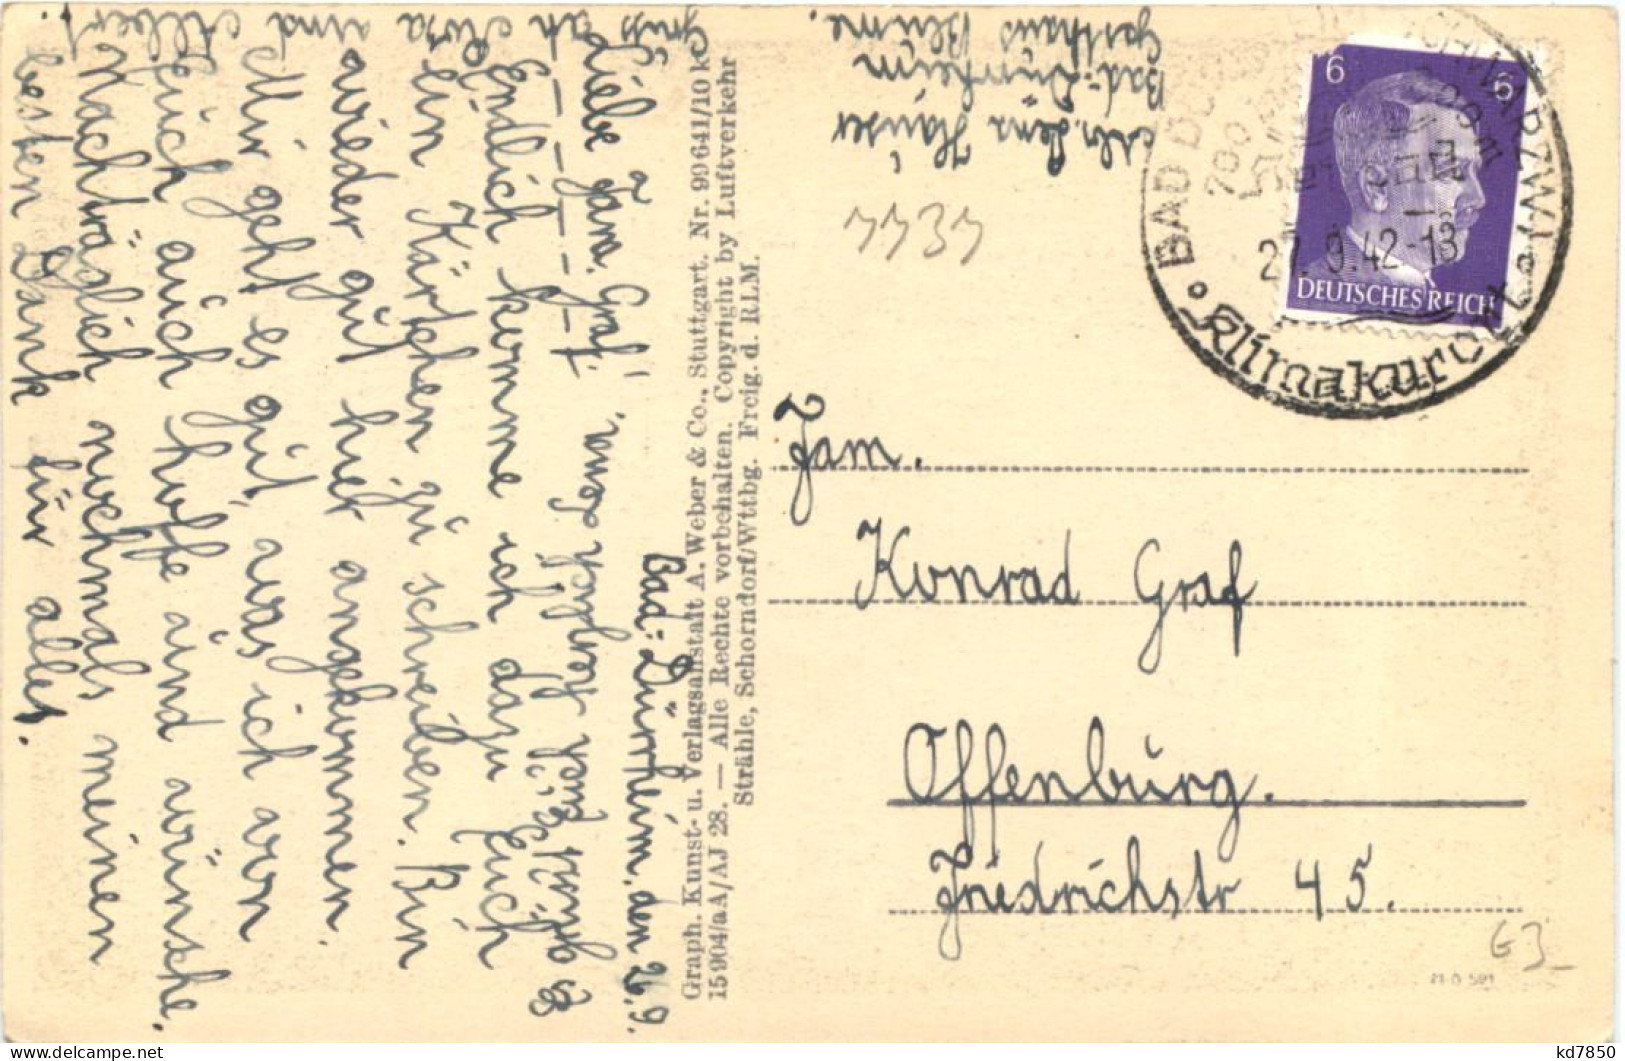 Bad-Dürrheim, den 26.9.
Liebe Fam. Graf!
Endlich komme ich dazu Euch
ein Kärtchen zu schreiben. Bin
wieder gut hier angekommen.
Mir geht es gut, was ich von
Euch auch hoffe und wünsche.
Nachträglich nochmals meinen
besten Dank für alles.
Es grüßt Euch herzlich
Gruss an Rosa und Albert.
Abs. Lena Häuser
Bad-Dürrheim
Gasthaus Blume.
Graph. Kunst- u. Verlagsanstalt A. Weber & Co., Stuttgart. Nr. 99641/10 K
15904/aA/AJ 28. — Alle Rechte vorbehalten. Copyright by Luftverkehr
Strähle, Schorndorf/Wttbg. Freig. d. RLM.
BAD DÜ
SCHWARZWALD
700
27.9.42-13
Klimakurort
6 6
DEUTSCHES REICH
Fam.
Konrad Graf
Offenburg.
Friedrichstr 45.
kd7850